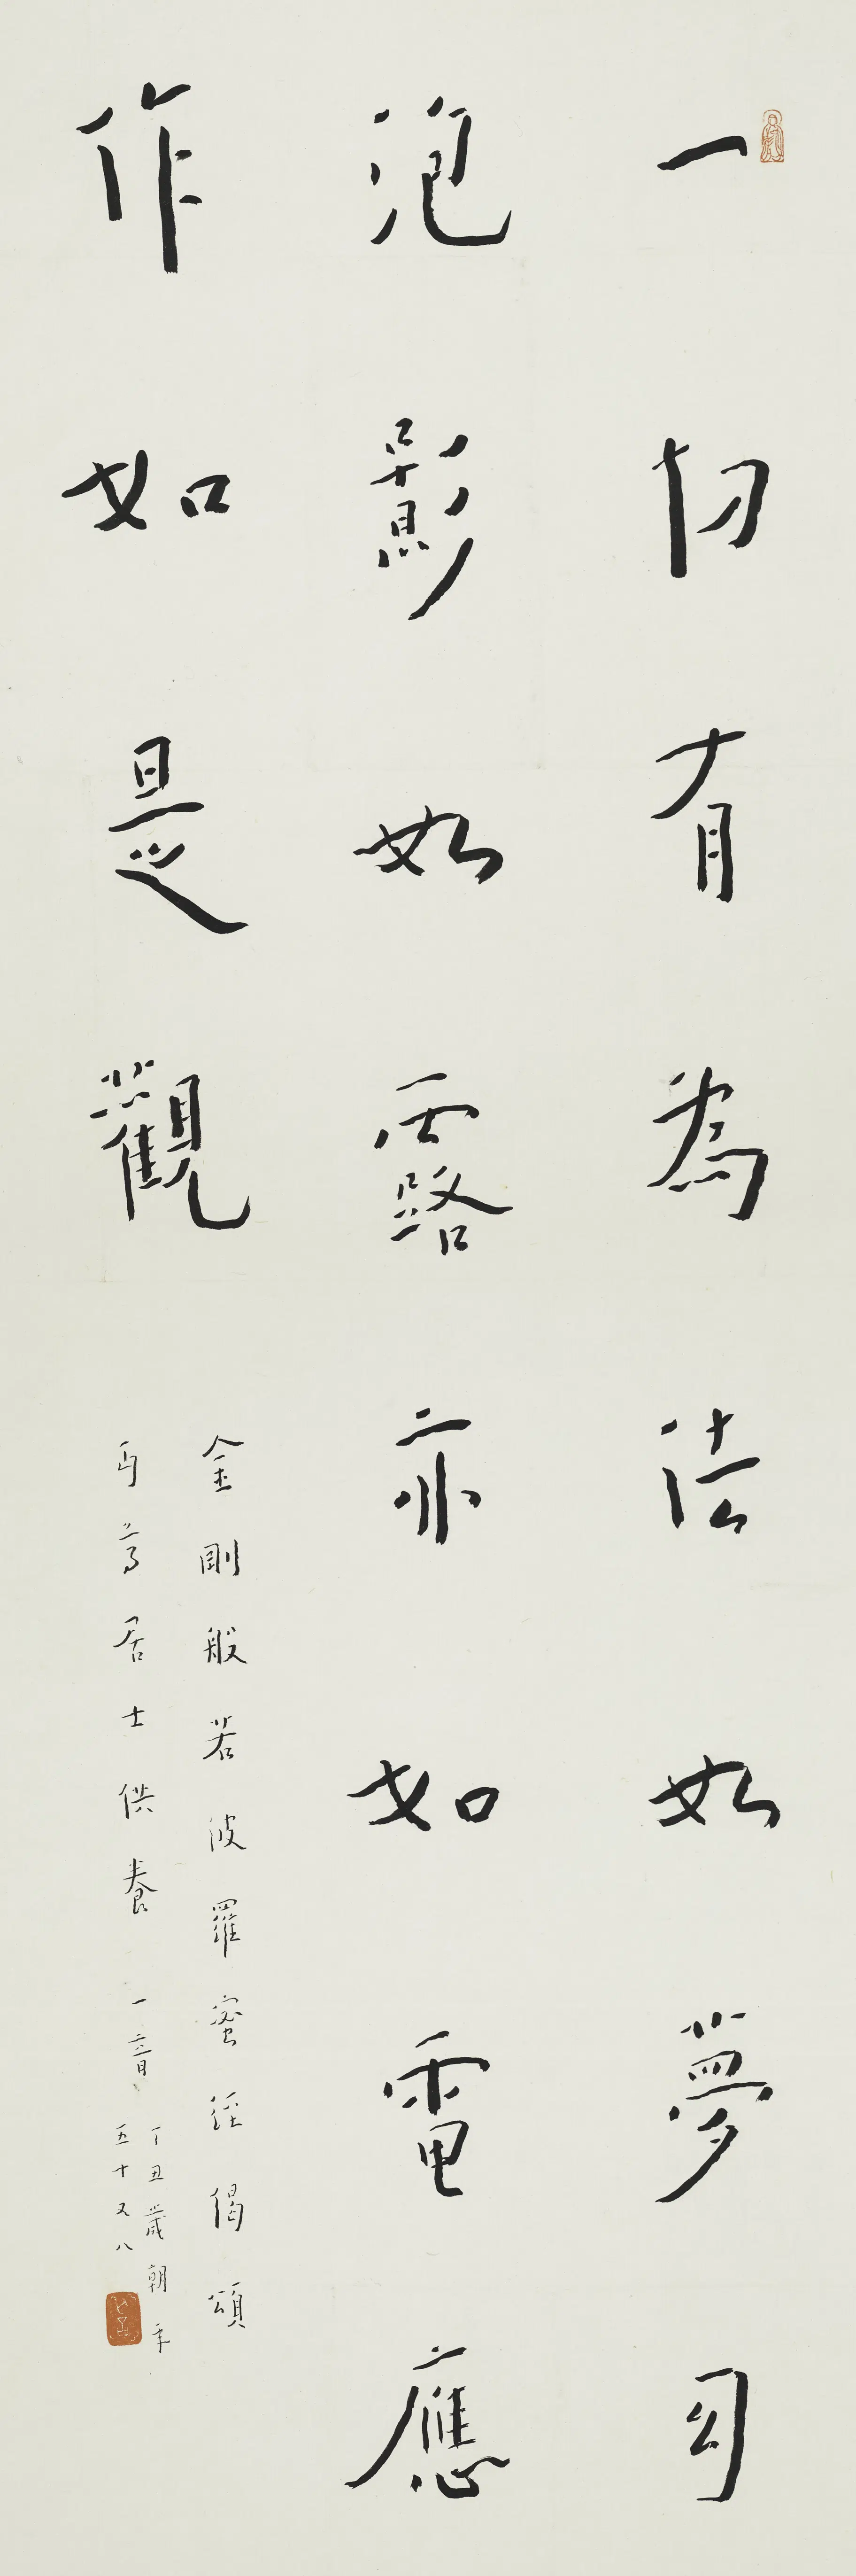 一切有為法如夢幻
泡影如露亦如電應
作如是觀
金剛般若波羅蜜經偈頌
丏尊居士供養 一音
丁丑歲朝年
五十又八